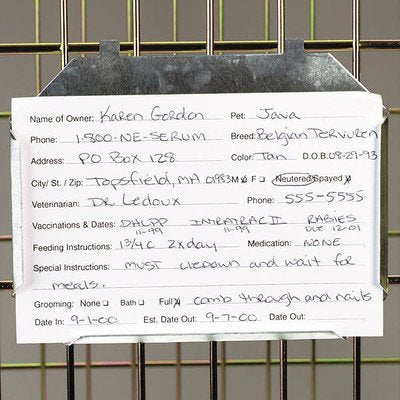 Name of Owner: Karen Gordon Pet: Java
Phone: 1-800-NE-SERUM Breed: Belgian Tervuren
Address: PO Box 128 Color: Tan D.O.B. 08-29-93
City/ St. / Zip: Topsfield, MA 01983 M F Neutered Spayed
Veterinarian: Dr. Ledoux Phone: 555-5555
Vaccinations & Dates: DHLPP INTRATRAC II RABIES
11-99 11-99 DUE 12-01
Feeding Instructions: 1 3/4 C 2x day Medication: NONE
Special Instructions: must lie down and wait for
meals.
Grooming: None Bath Full comb through and nails
Date In: 9-1-00 Est. Date Out: 9-7-00 Date Out: